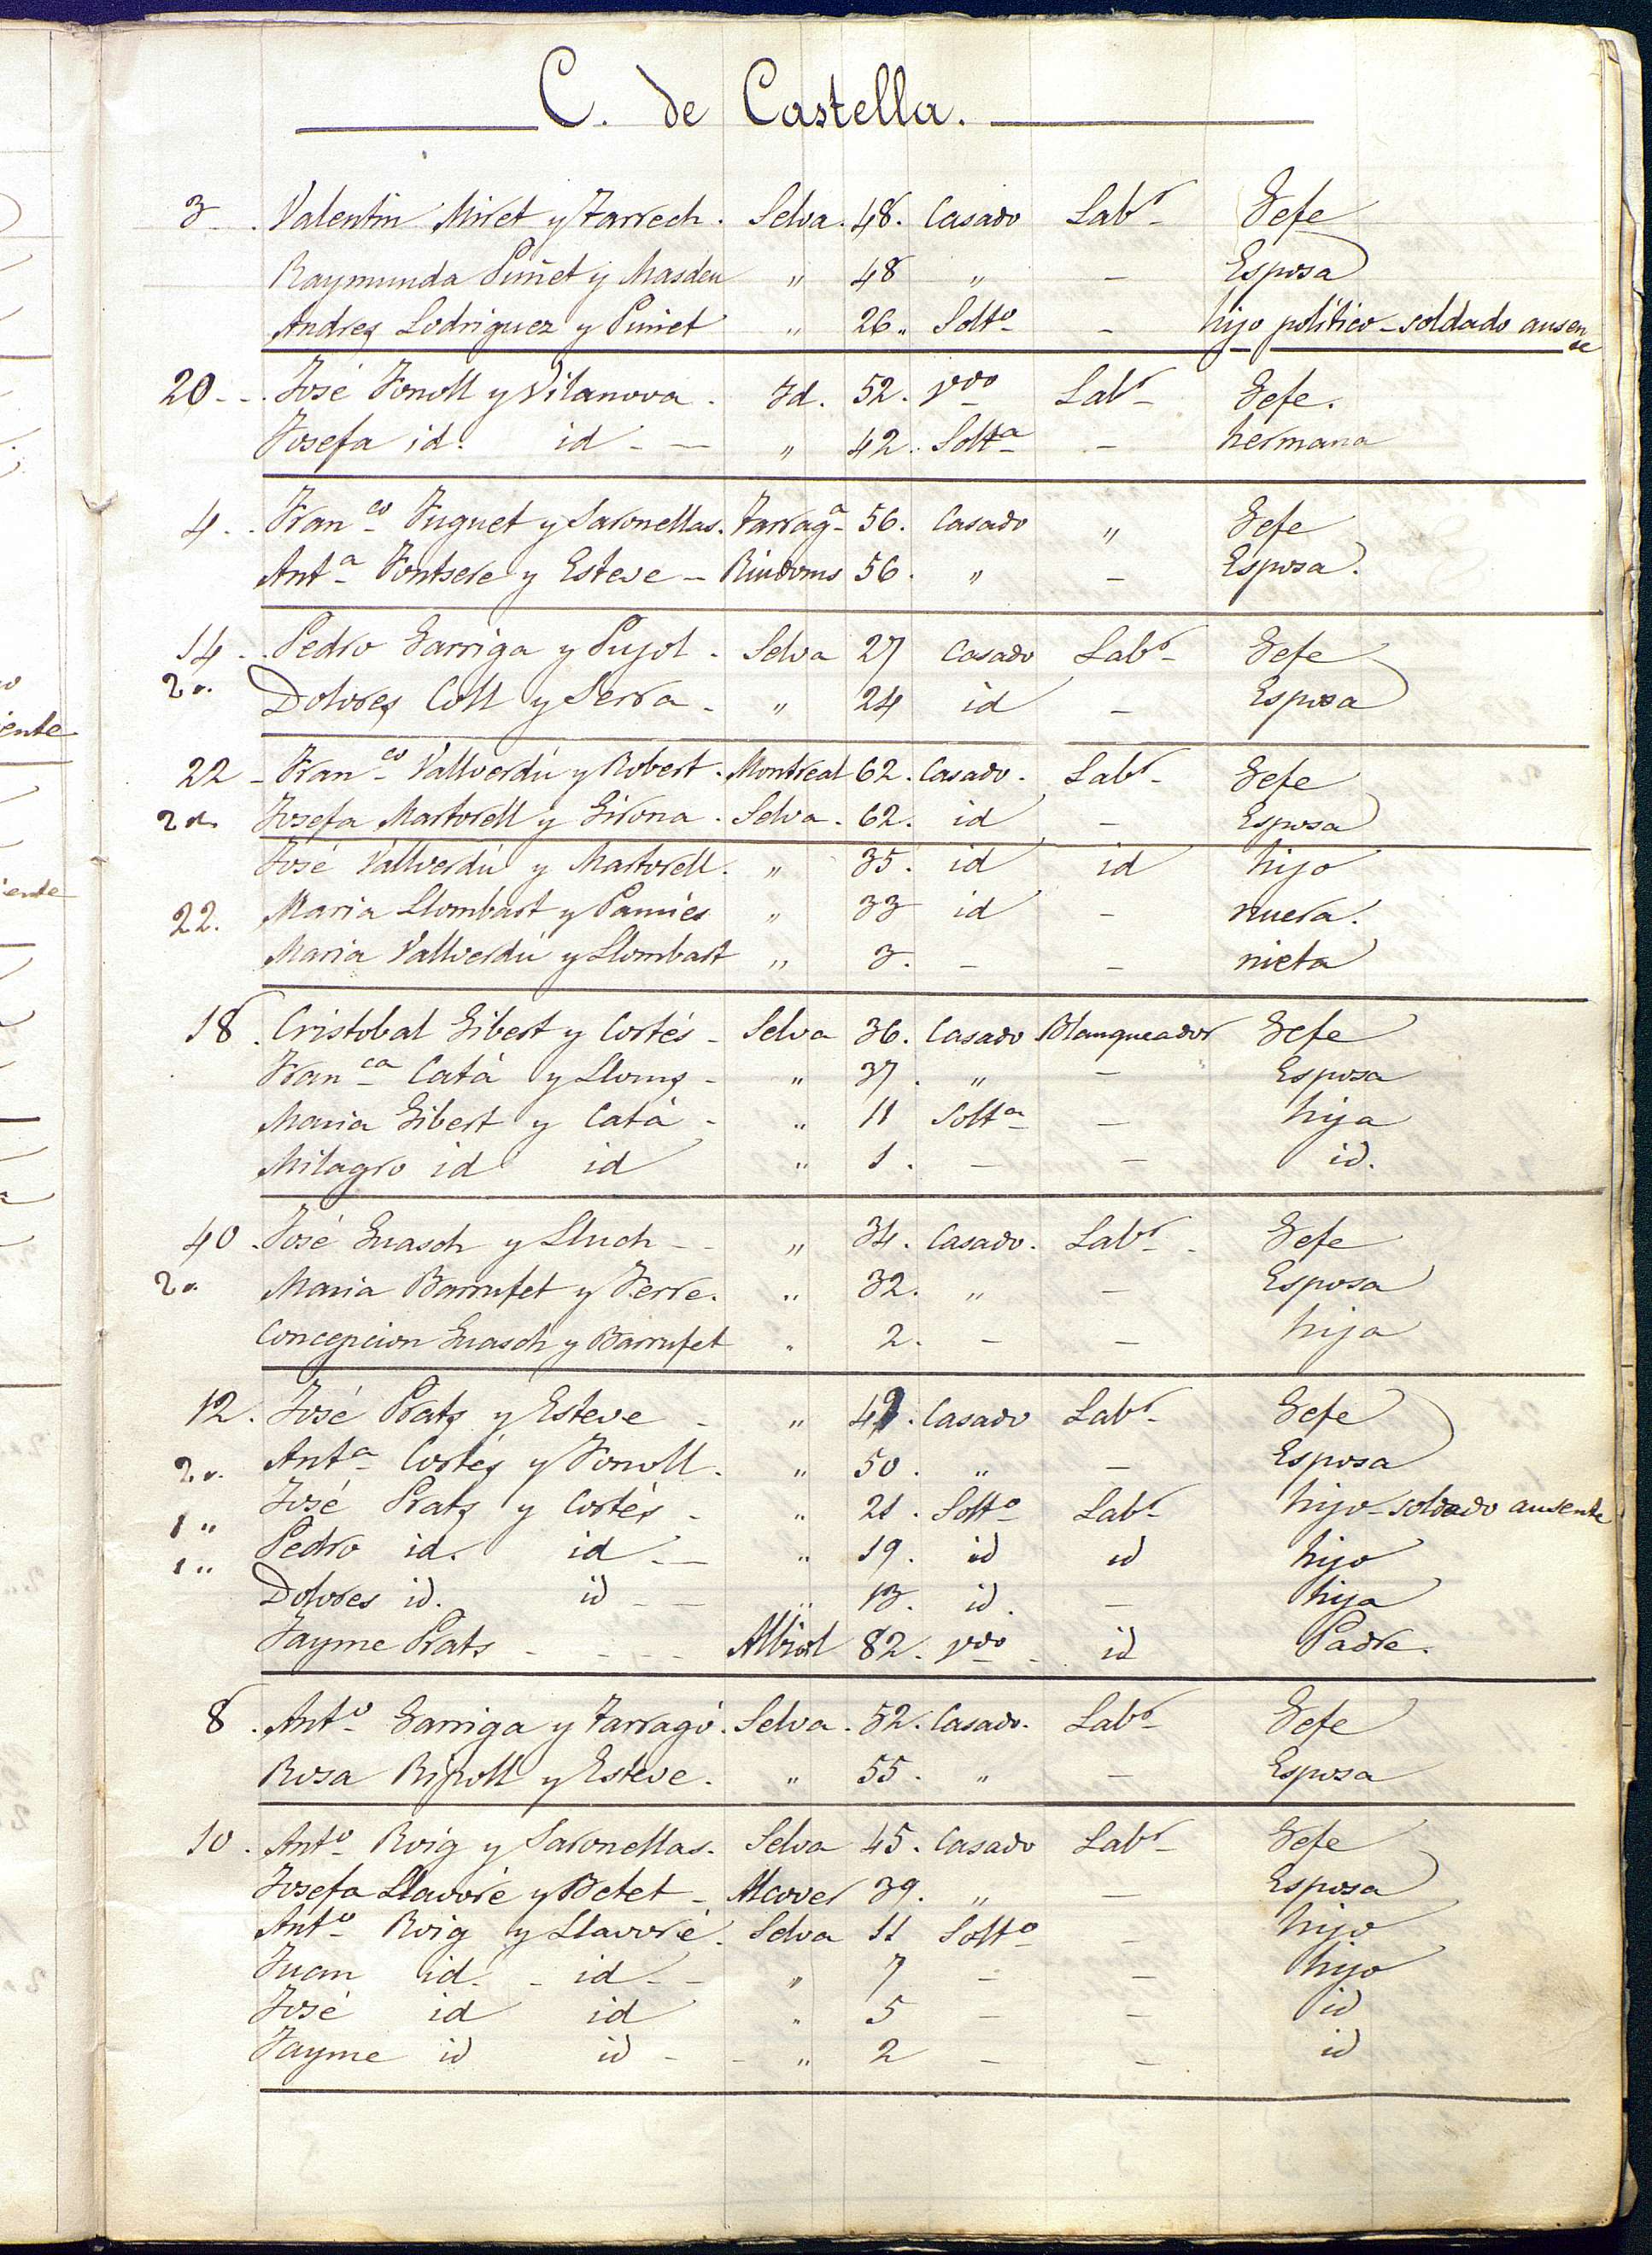 C. de Castella.
3 - . Valentin Miret y Tarrech . Selva . 48 . Casado Labr Gefe
Raymunda Piñet y Masdeu " 48 " - Esposa
Andres Lodriguez y Piñet " 26 " Solto - hijo político - soldado ausente
20 - . José Fonoll y Vilanova . Id. 52 . Vdo Labr Gefe.
Josefa id. id - - " 42 . Solta - hermana
4 . . Franco Fuguet y Saronellas . Tarraga 56 . Casado " Gefe
Anta Fontsere y Esteve - Riudoms 56 . " - Esposa.
14 - . Pedro Garriga y Pujol . Selva 27 Casado Labr Gefe
2o. Dolores Coll y Serra . " 24 id - Esposa
22 - Franco Vallverdú y Robert . Montreal 62 . Casado . Labr Gefe
2o. Josefa Martorell y Girona . Selva . 62 . id - Esposa
José Vallverdú y Martorell . " 35 . id id hijo
22. Maria Llombart y Pamies " 33 id - nuera.
Maria Vallverdú y Llombart " 3 . - - nieta
18 . Cristobal Gibert y Cortés - Selva 36 . Casado Blanqueador Gefe
Franca Catá y Lloms - " 37 . " - Esposa
Maria Gibert y Catá - " 11 Solta - hija
Milagro id id " 1 . - - id.
40 . José Guasch y Lluch - - " 34 . Casado . Labr - Gefe
2o. Maria Barrufet y Ferre . " 32 . " - Esposa
Concepcion Guasch y Barrufet " 2 . - - hija
12 . José Prats y Esteve - " 49 . Casado Labr Gefe
2o. Anta Cortés y Fonoll . " 50 . " - Esposa
1 " José Prats y Cortés - " 21 . Solto Labr hijo - soldado ausente
1 " Pedro id. id - - " 19 . id id hijo
Dolores id. id - - " 13 . id . - hija
Jayme Prats - - - - Albiol 82 . Vdo - id Padre.
8 . Anto Garriga y Tarragó . Selva . 52 . Casado . Labr Gefe
Rosa Ripoll y Esteve . " 55 . " - Esposa
10 . Anto Roig y Saronellas . Selva 45 . Casado Labr Gefe
Josefa Llavoré y Betet - Alcover 39 . " - Esposa
Anto Roig y Llavoré . Selva 11 Solto - hijo
Juan id. - id - - " 7 - - hijo
José id id " 5 - - id
Jayme id id - - " 2 - - id